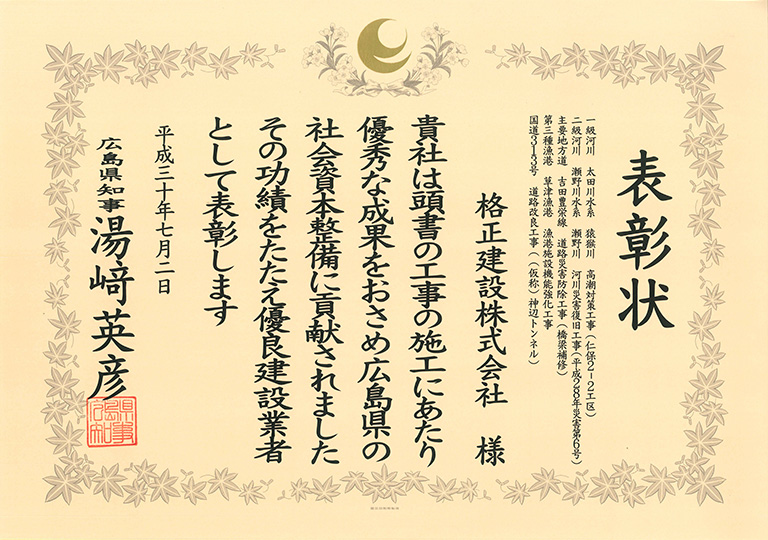 表彰状
一級河川　太田川水系　猿猴川　高潮対策工事（仁保2-2工区）
二級河川　瀬野川水系　瀬野川　河川災害復旧工事（平成28年災害第6号）
主要地方道　吉田豊栄線　道路災害防除工事（橋梁補修）
第三種漁港　草津漁港　漁港施設機能強化工事
国道313号　道路改良工事（（仮称）神辺トンネル）
格正建設株式会社　様
貴社は頭書の工事の施工にあたり
優秀な成果をおさめ広島県の
社会資本整備に貢献されました
その功績をたたえ優良建設業者
として表彰します
平成三十年七月二日
広島県知事　湯﨑英彦
広島県知事